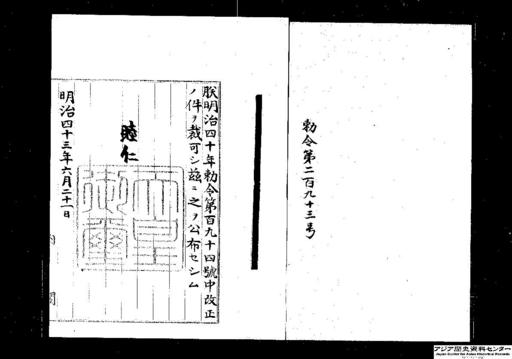 勅令第二百九十三号
朕明治四十年勅令第百九十四號中改正
ノ件ヲ裁可シ茲ニ之ヲ公布セシム
睦仁
明治四十三年六月二十一日
内閣
アジア歴史資料センター
Japan Center for Asian Historical Records